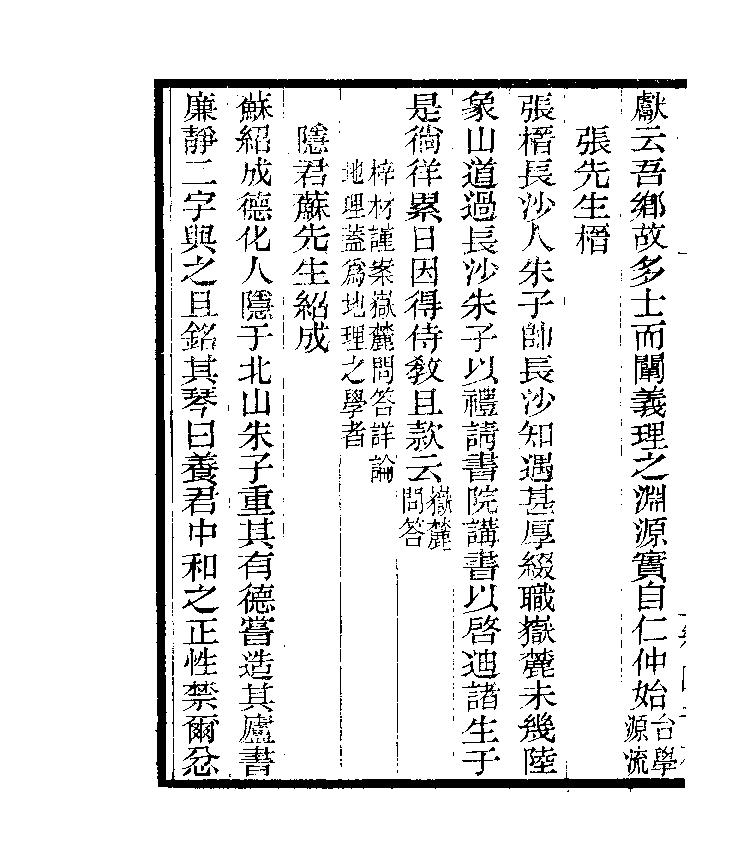 獻云吾鄉故多士而闡義理之淵源實自仁仲始台學源流
張先生㮣
張㮣長沙人朱子帥長沙知遇甚厚綴職嶽麓未幾陸
象山道過長沙朱子以禮請書院講書以啓迪諸生于
是徜徉累日因得侍敎且款云嶽麓問答
梓材謹案嶽麓問答詳論
地理蓋爲地理之學者
隱君蘇先生紹成
蘇紹成德化人隱于北山朱子重其有德嘗造其廬書
廉靜二字與之且銘其琴曰養君中和之正性禁爾忿